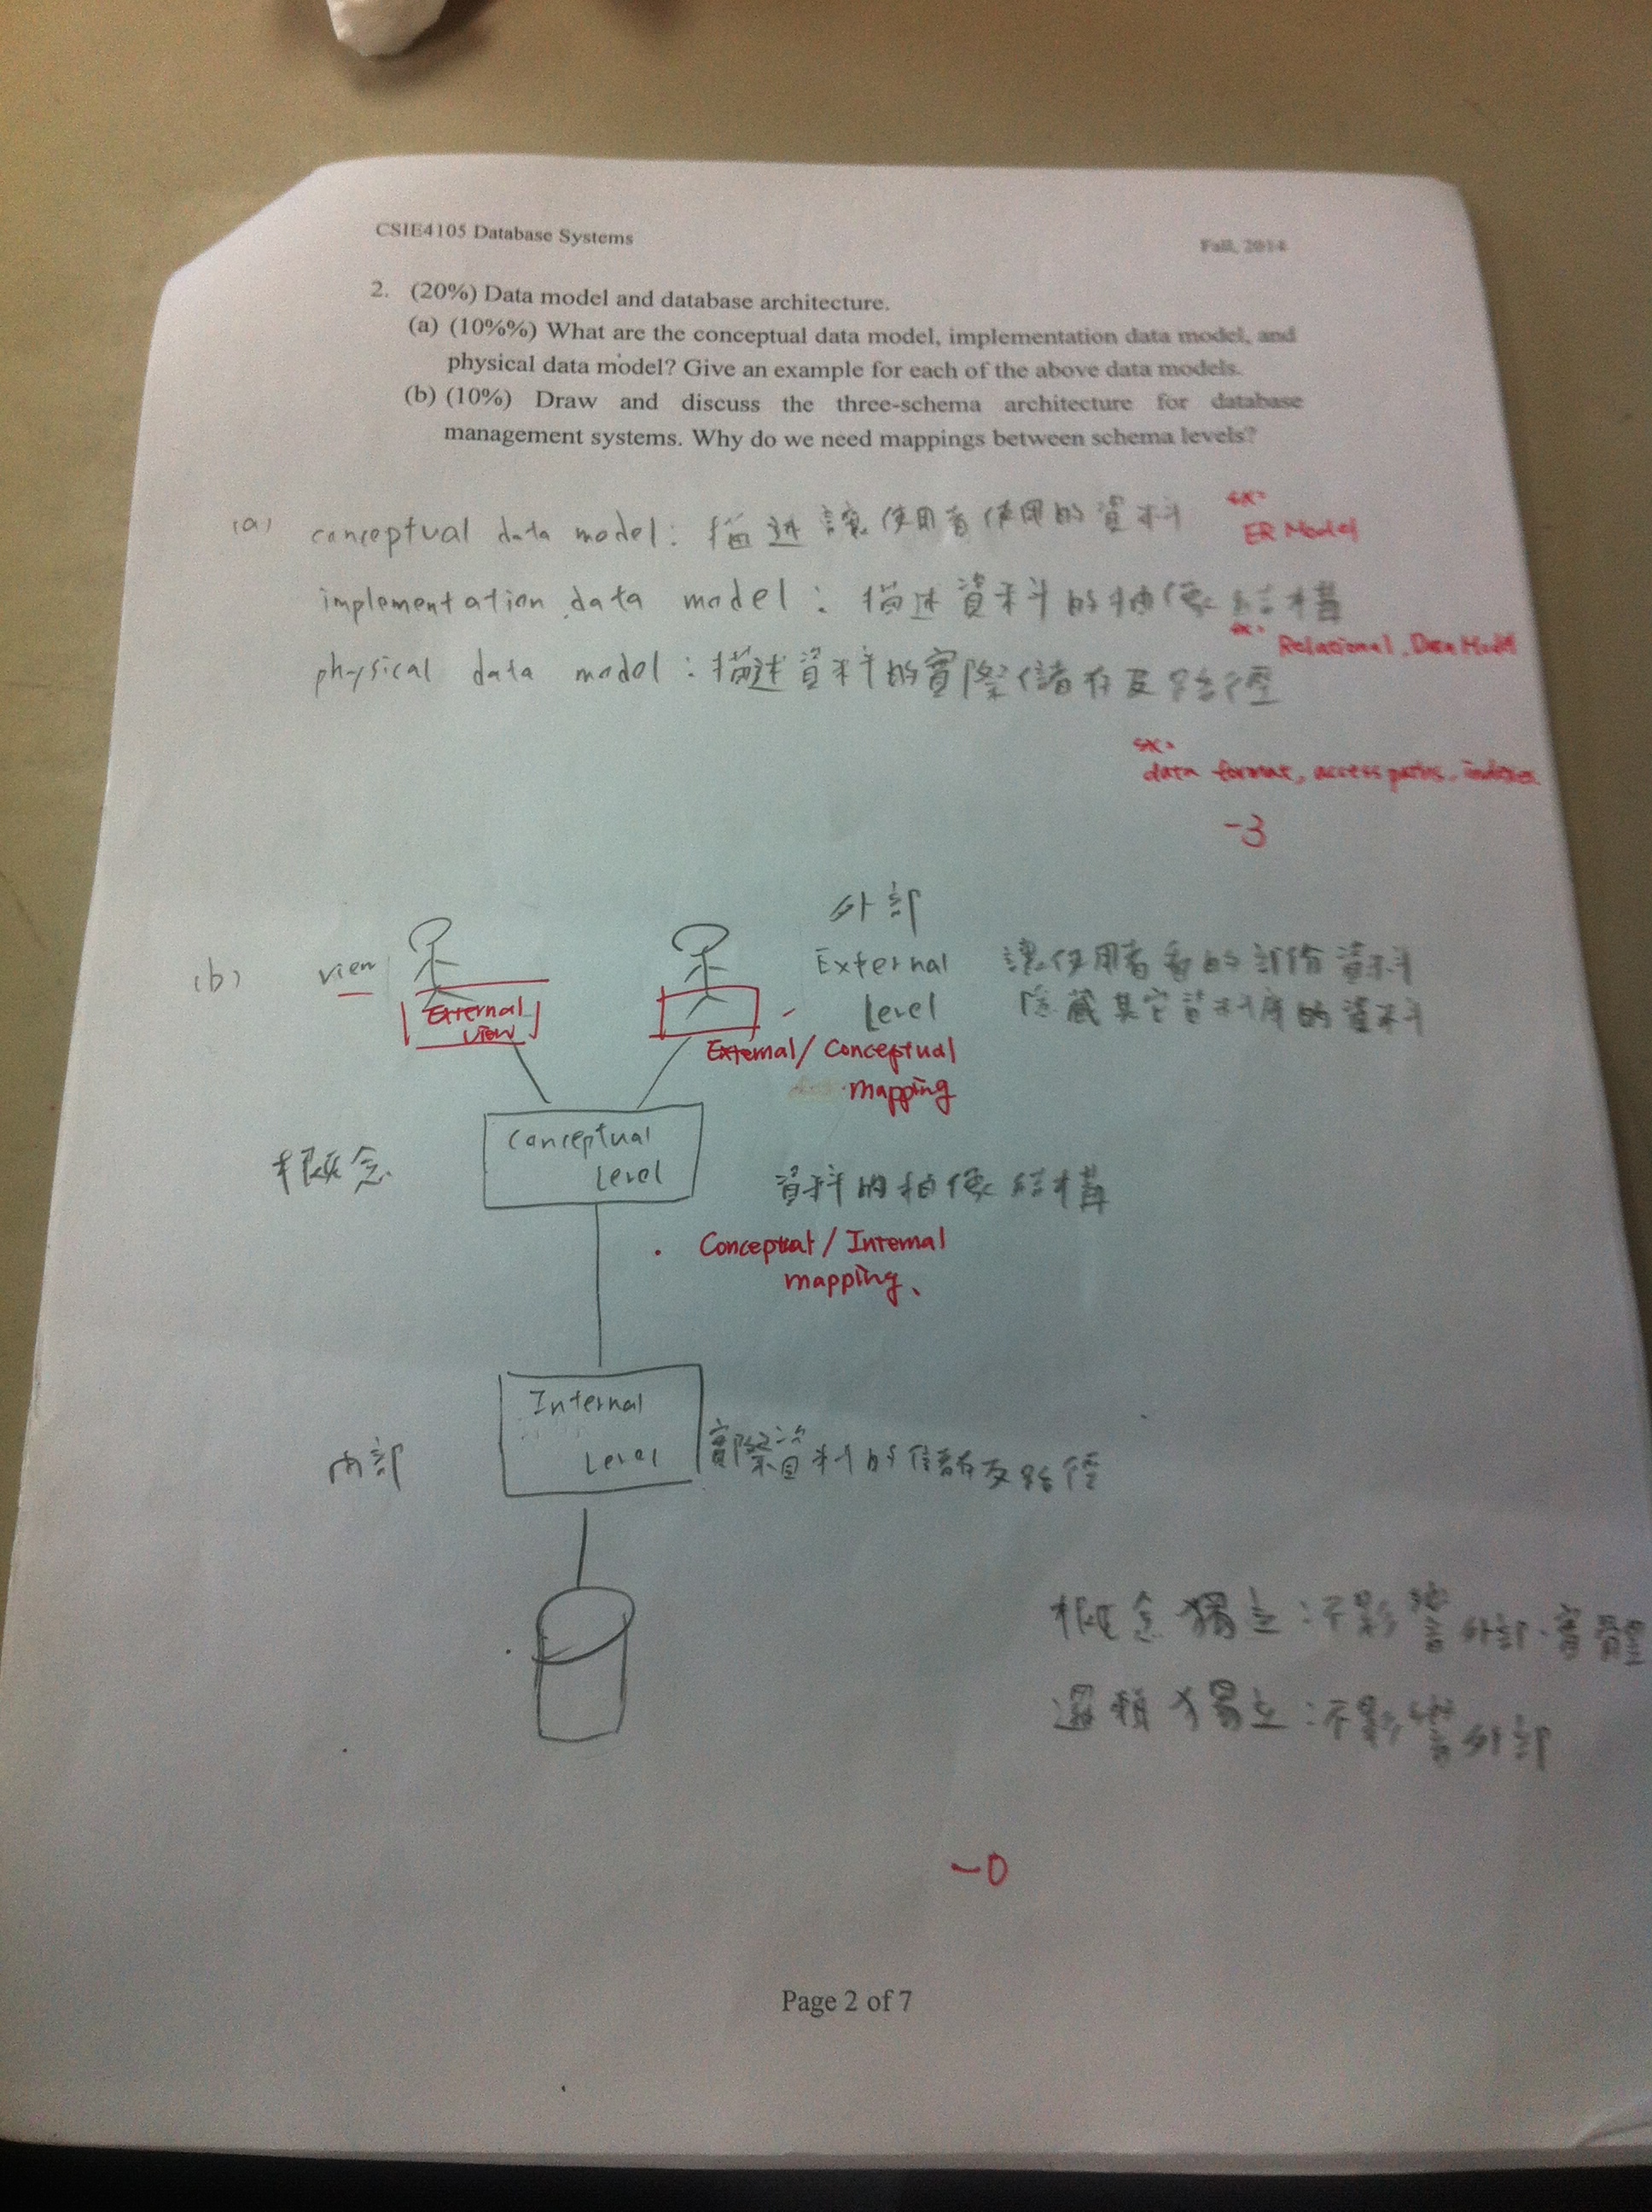 CSIE4105 Database Systems
Fall, 2014
2. (20%) Data model and database architecture.
(a) (10%%) What are the conceptual data model, implementation data model, and
physical data model? Give an example for each of the above data models.
(b) (10%) Draw and discuss the three-schema architecture for database
management systems. Why do we need mappings between schema levels?
(a) conceptual data model: 描述讓使用者使用的資料
ex:
ER Model
implementation data model: 描述資料的抽象結構
ex: Relational Data Model
physical data model: 描述資料的實際儲存及路徑
ex:
data format, access paths, indexes
-3
(b) view
外部
External
Level
讓使用者看的部份資料
隱藏其它資料庫的資料
External
view
External/Conceptual
mapping
概念
Conceptual
Level
資料的抽象結構
Conceptual/Internal
mapping
內部
Internal
Level
實際資料的儲存及路徑
概念獨立:不影響外部、實體
邏輯獨立:不影響外部
-0
Page 2 of 7